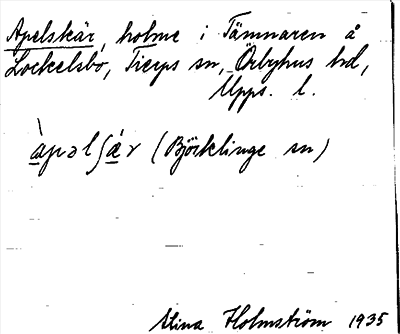 Apelskär, holme i Tämnaren å
Lockelsbo, Tierps sn, Örbyhus hd,
Upps. l.
àpəlʃár (Björklinge sn)
Stina Holmström 1935